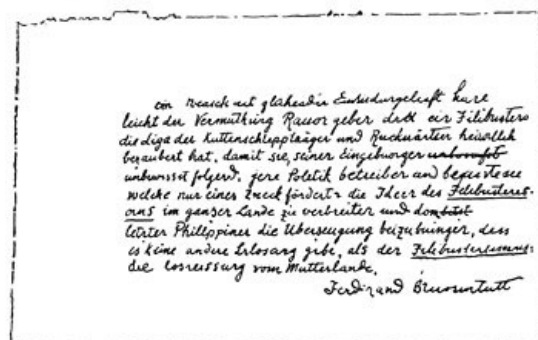 ein Mensch mit glühender Einbildungskraft
leicht der Vermuthung Raum geben daß ein Filibustero
die Liga der Kuttenschleppträger und Ruckwärtler heimlich
bezaubert hat, damit sie, seinen Eingebungen
unbewusst folgend, jene Politik betreiben und
welche nur einen Zweck fördert: die Ideen des Filibusteris-
mus im ganzen Lande zu verbreiten und
letzten Philippiner die Ueberzeugung beizubringen, dass
es keine andere Erlösung gebe, als den Filibusterismus:
die Losreissung vom Mutterlande.
Ferdinand Blumentritt